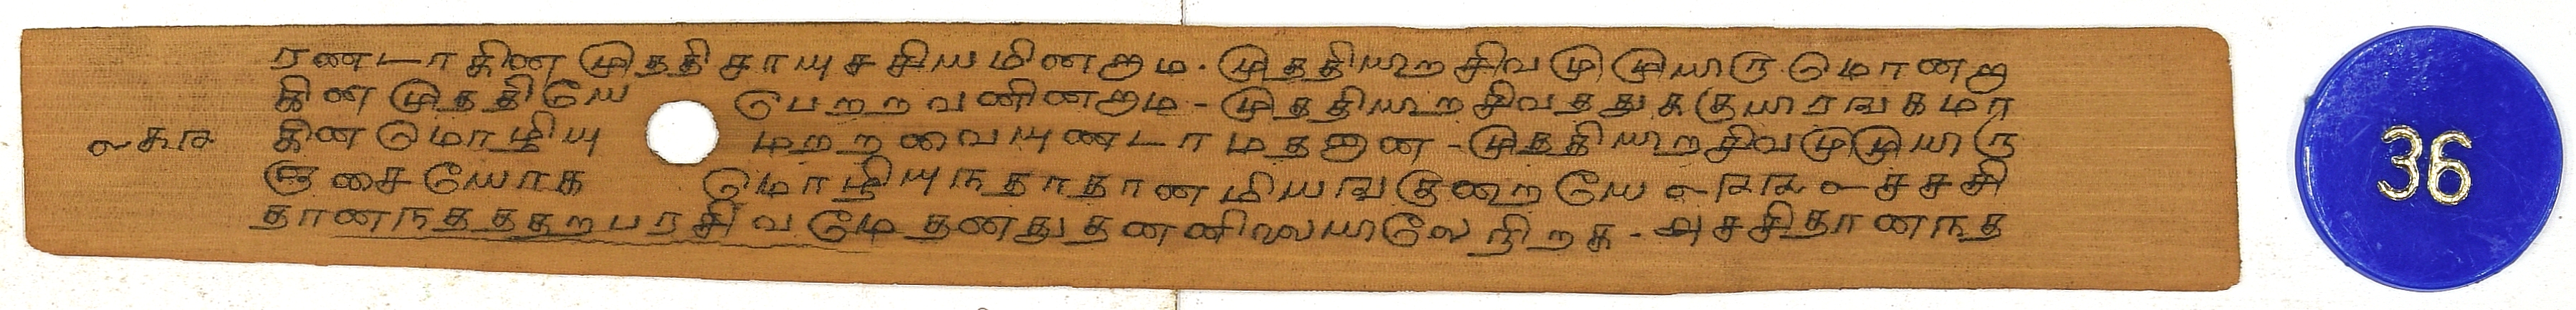 ரணடாகின முததி சாயுச சியமினறும - முததியுற சிவமுமுயிரு மொனறு
கின முததியே பெறறவனினறும - முததியுற சிவததுககுயுரஙகமா
௨௧௩ கின மொழியு மறறவையுணடாமதனுன - முததியுற சிவமுமுயிரு
ஞசையோக மொழியுநதாதான மியஙகுனறயே ௨௩௩ ௨ சசசி
தானநதததறபரசிவமே தனதுதனனிலையாலே நிறக - அசசிதானநத
36